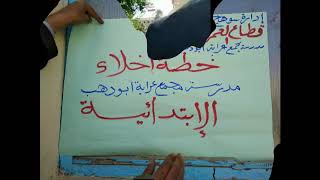 إدارة سوهاج
قطاع
مدرسة مجمع عرابة أبو
خطة اخلاء
مدرسة مجمع عرابة ابودهب
الإبتدائية